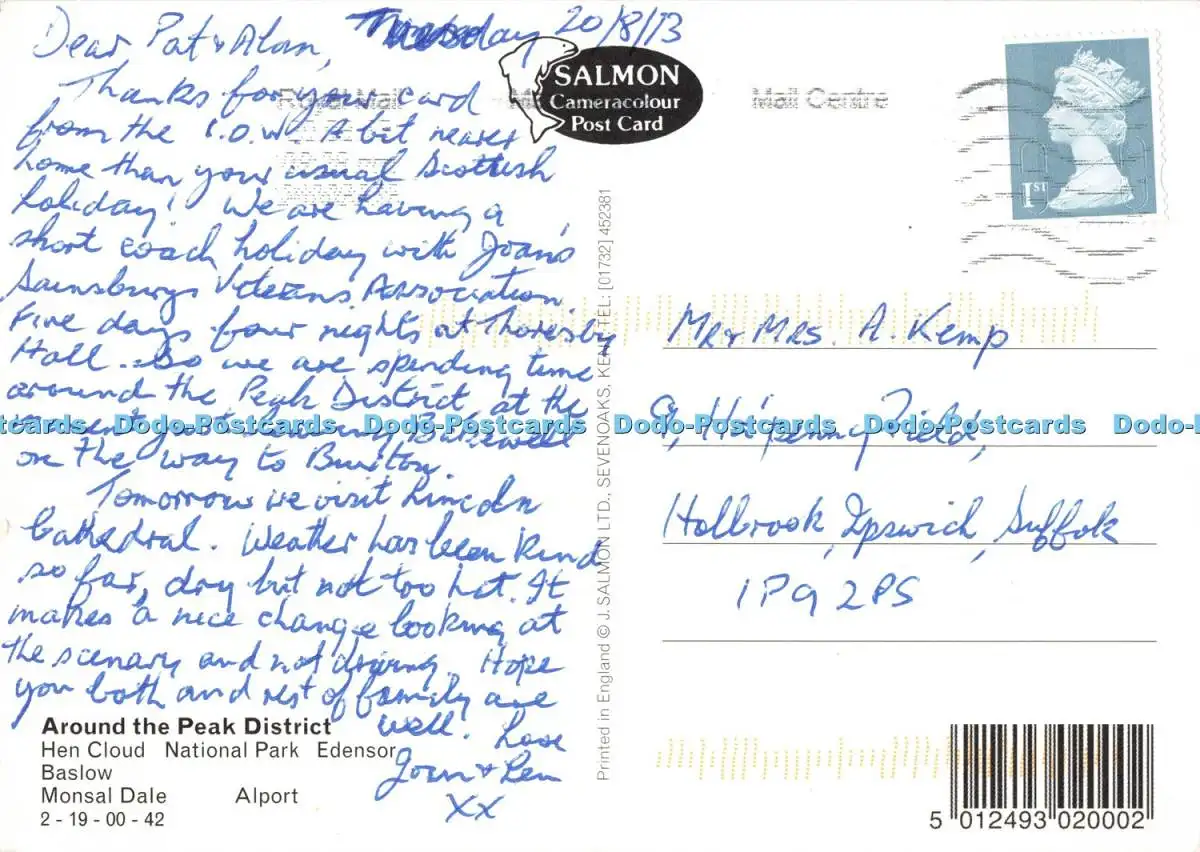 Dear Pat & Alan, Tuesday 20/8/13
Thanks for your card
from the I.O.W. A bit nearer
home than your usual Scottish
holiday! We are having a
short coach holiday with Joan's
Sainsburys Veterans Association
Five days four nights at Thoresby
Hall. So we are spending time
around the Peak District, at the
moment just leaving Bakewell
on the way to Buxton.
Tomorrow we visit Lincoln
Cathedral. Weather has been kind
so far, dry but not too hot. It
makes a nice change looking at
the scenary and not driving. Hope
you both and rest of family are
well. Love
Joan & Len
XX
Around the Peak District
Hen Cloud National Park Edensor
Baslow
Monsal Dale Alport
2 - 19 - 00 - 42
SALMON
Cameracolour
Post Card
Royal Mail
Mail Centre
1ST
Printed in England © J. SALMON LTD., SEVENOAKS, KENT TEL: [01732] 452381
Mr & Mrs. A. Kemp
9, Ha'penny Field,
Holbrook, Ipswich, Suffolk
IP9 2PS
5 012493 020002
Dodo-Postcards Dodo-Postcards Dodo-Postcards Dodo-Postcards